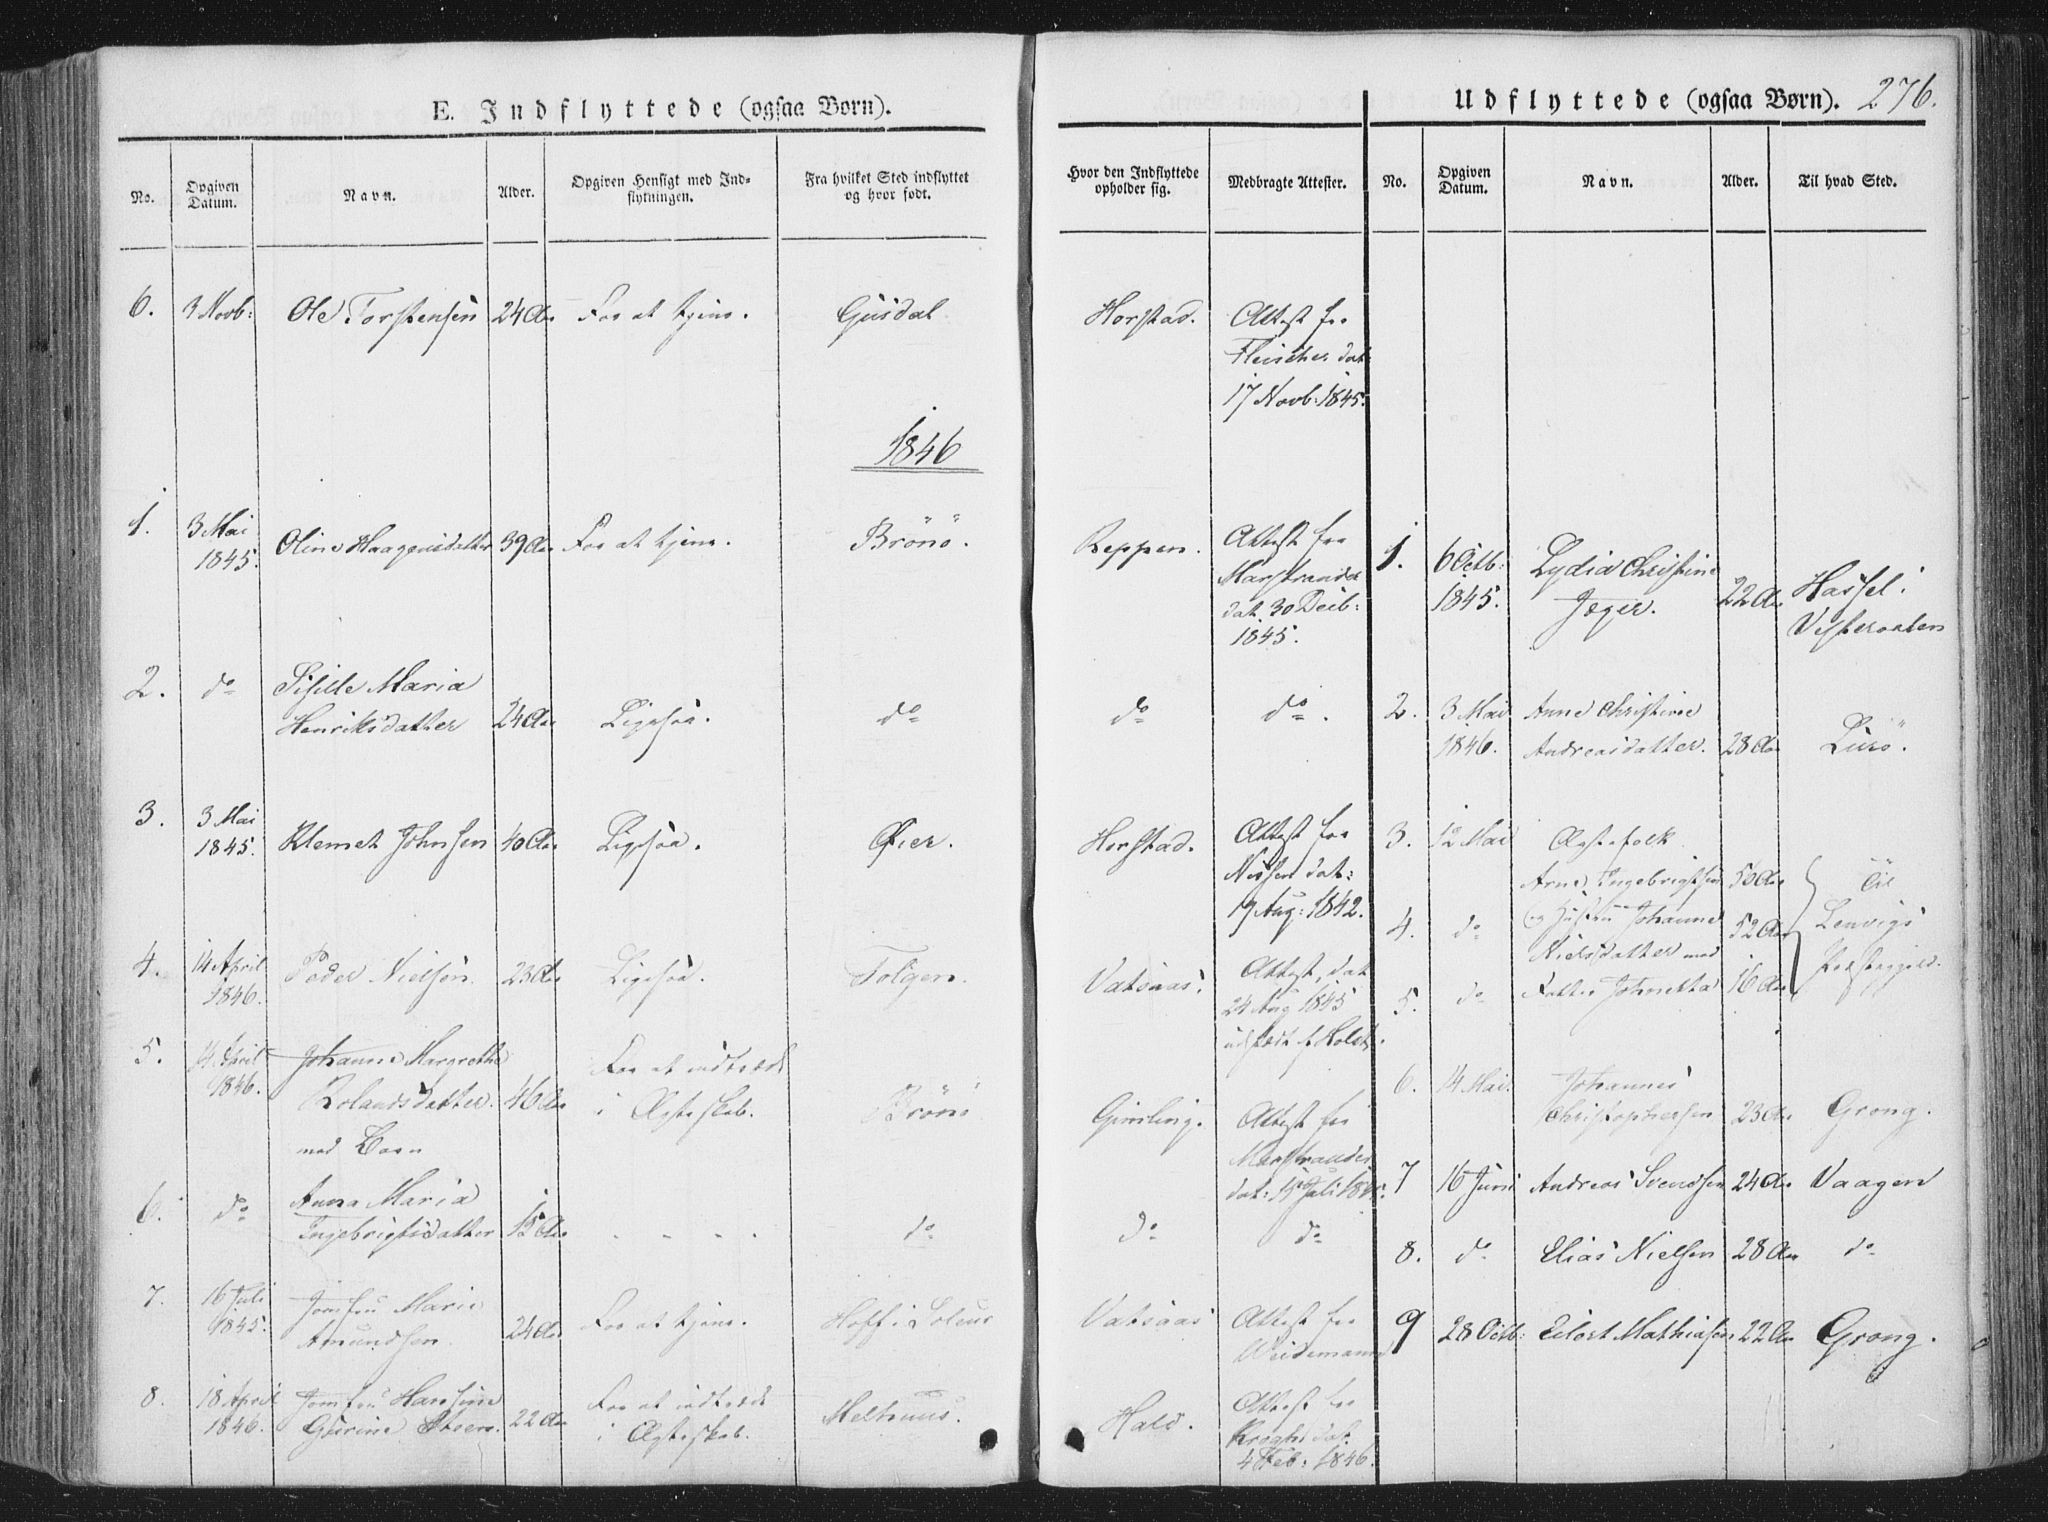 E. Indflyttede (ogsaa Børn).
No.
Opgiven Datum.
Navn.
Alder.
Opgiven Hensigt med Ind-
flytningen.
Fra hvilket Sted indflyttet
og hvor født.
6. 3 Novb: Ole Torstensen 24 Aar For at tjene. Gusdal
1846
1. 3 Mai Oline Haagensdatter 39 Aar For at tjene. Brönö.
1845.
2. do Sisille Maria
Henriksdatter 24 Aar Ligesaa. do
3. 3 Mai Klemet Johnsen 40 Aar Ligesaa. Øier.
1845.
4. 14 April Peder Nielsen 23 Aar Ligesaa. Tolgen.
1846.
5. 14 April Johanne Margrethe For at indtræde
1846. Rolandsdatter. 46 Aar i Ægteskab. Brönö
med Barn
6. do Anna Maria
Ingebrigtsdatter 15 Aar - - - - do
7. 16 Juli Jomfru Marie
1845. Amundsen. 24 Aar For at tjene. Hoff i
8. 18 April Jomfru Hansine For at indtræde
1846. Gurine 22 Aar i Ægteskab. Melhuus.
Udflyttede (ogsaa Børn). 276.
Hvor den Indflyttede
opholder sig.
Medbragte Attester.
No.
Opgiven
Datum.
Navn.
Alder.
Til hvad Sted.
Horstad. Attest fra
Fleischer dat:
17 Novb: 1845.
Reppen. Attest fra
Marstrander
dat. 30 Decb:
1845.
do do.
Horstad. Attest fra
Nissen dat:
Aug: 1842.
Vatsaas. Attest, dat
24 Aug 1845
udstædt f Holst.
Gimling. Attest fra
Marstrander
dat: Juli
do do
Vatsaas Attest fra
Weidemann
Hald. Attest fra
Krogh dat
4 Feb: 1846.
1. 6 Octb: Lydia Christine
1845. Jeger. 22 Aar Hassel i
Vesteraalen
2. 3 Mai Anne Christine
1846. Andreasdatter. 28 Aar Lurö.
3. 12 Mai Ægtefolk
Arne Ingebrigtsen 50 Aar Til
4. do og Hustru Johanne 52 Aar Lenvigs
Nielsdatter med Præstegjeld.
5. do Datter Johnetta 16 Aar
6. 14 Mai. Johannes
Christophersen 23 Aar Grong.
7 16 Juni Andreas Svendsen 24 Aar Vaagen
8. do Elias Nielsen 28 Aar do
9 28 Octb: Eilert Mathiasen 22 Aar Grong.